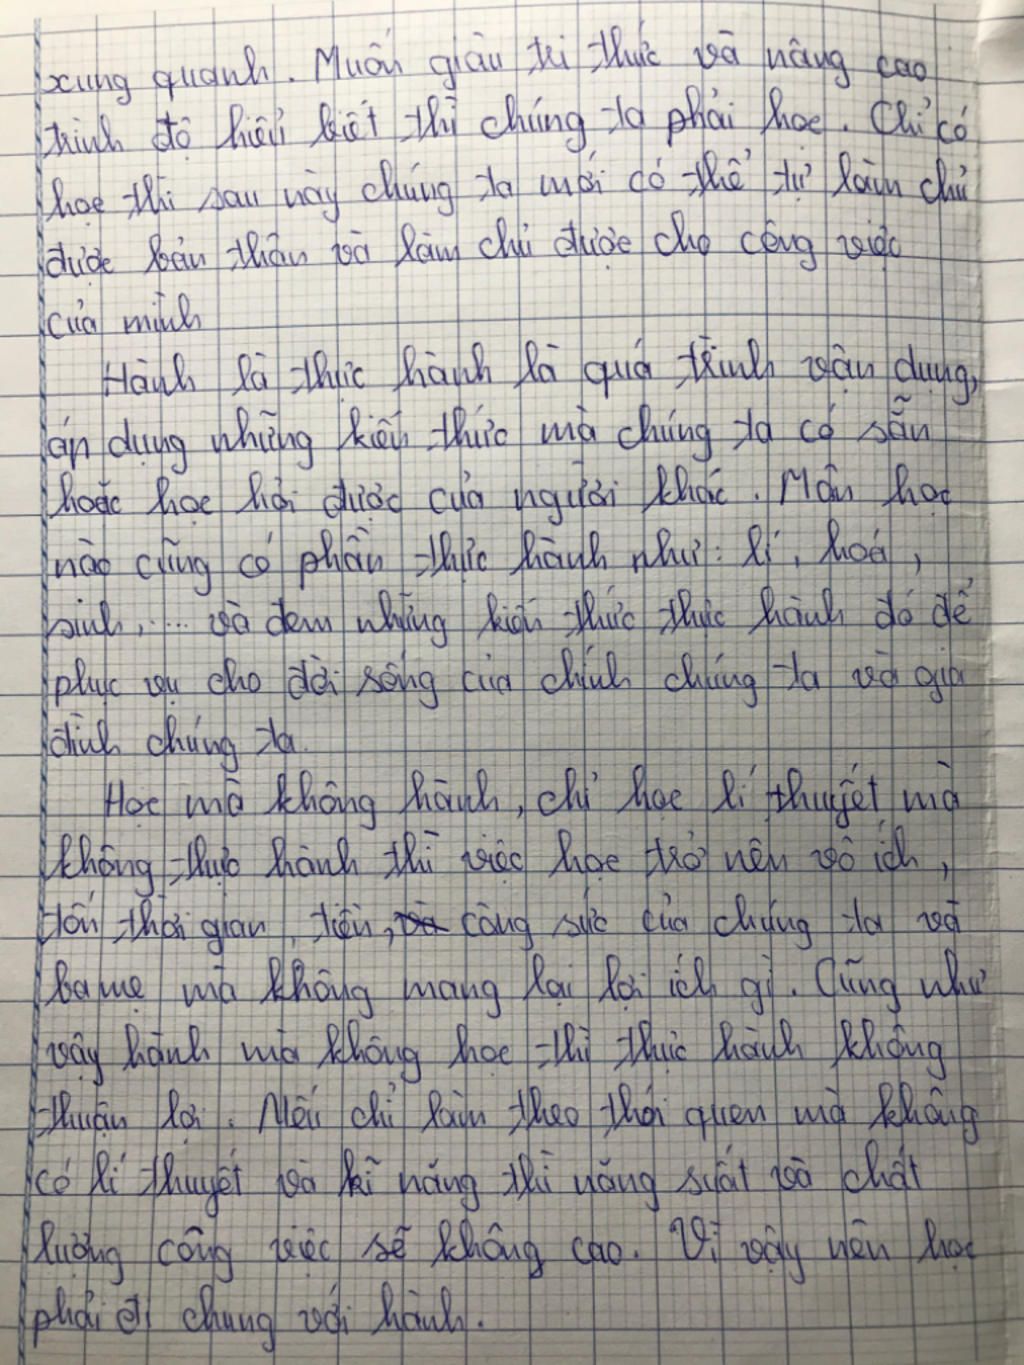 xung quanh. Muốn giàu tri thức và nâng cao
trình độ hiểu biết thì chúng ta phải học. Chỉ có
học thì sau này chúng ta mới có thể tự làm chủ
được bản thân và làm chủ được cho công việc
của mình
Hành là thực hành là quá trình vận dụng,
áp dụng những kiến thức mà chúng ta có sẵn
hoặc học hỏi được của người khác. Môn học
nào cũng có phần thực hành như: lí, hoá,
sinh,... và đem những kiến thức thực hành đó để
phục vụ cho đời sống của chính chúng ta và gia
đình chúng ta.
Học mà không hành, chỉ học lí thuyết mà
không thực hành thì việc học trở nên vô ích,
tốn thời gian, tiền, và công sức của chúng ta và
ba mẹ mà không mang lại lợi ích gì. Cũng như
vậy hành mà không học thì thực hành không
thuận lợi. Nếu chỉ làm theo thói quen mà không
có lí thuyết và kĩ năng thì năng suất và chất
lượng công việc sẽ không cao. Vì vậy nên học
phải đi chung với hành.